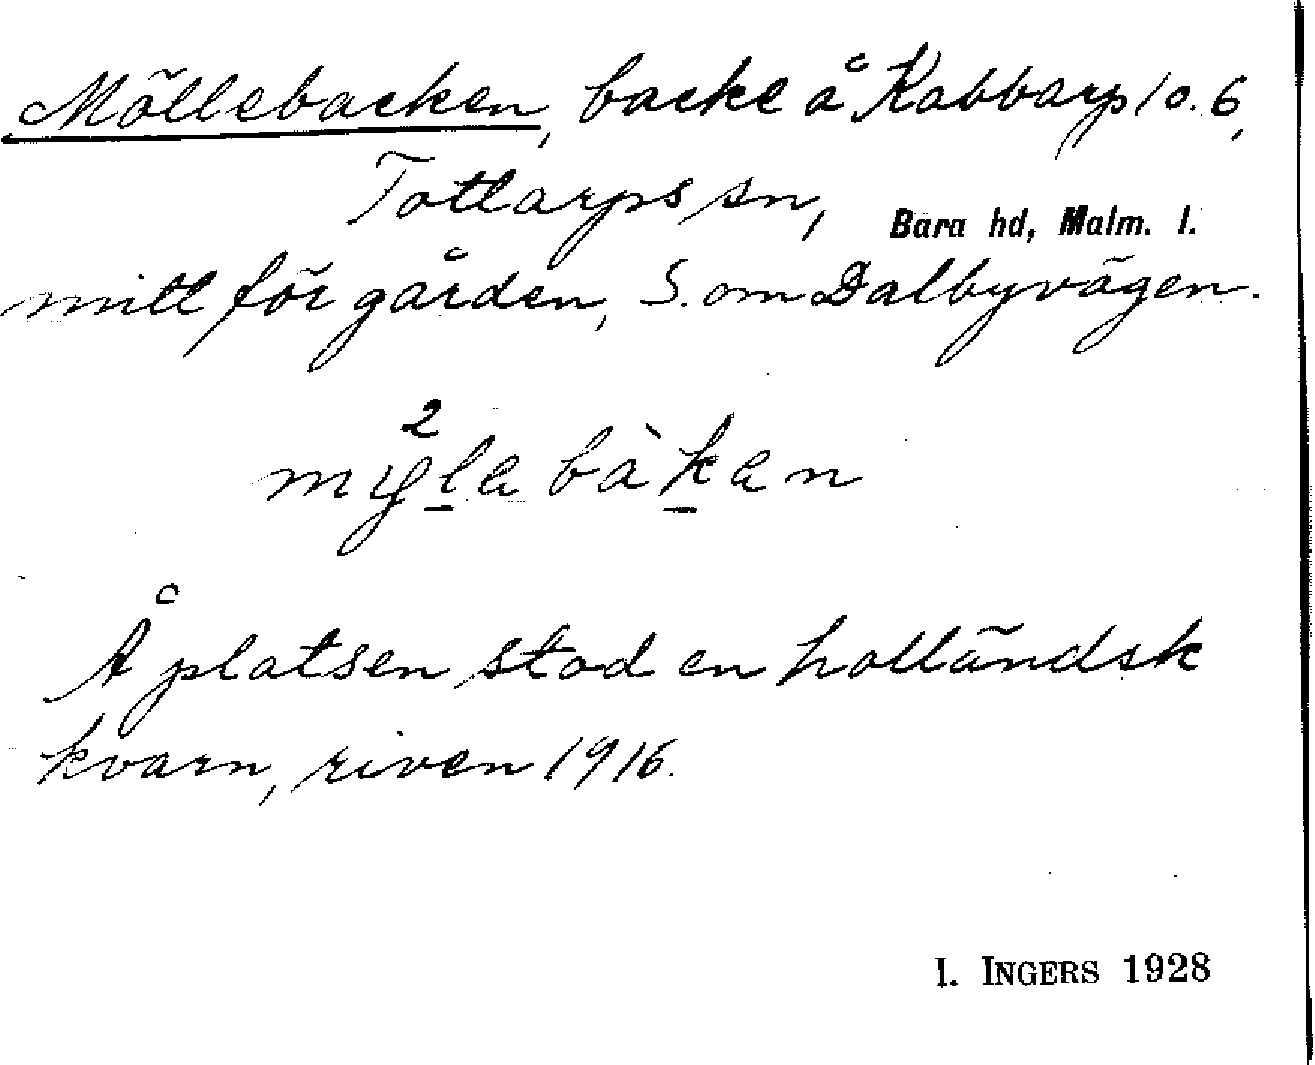 Möllebacken, backe å Kabbarp 1 o. 6,
Tottarps sn, Bara hd, Malm. l.
mitt för gården, S. om Dalbyvägen.
Å platsen stod en holländsk
kvarn, riven 1916.
I. INGERS 1928